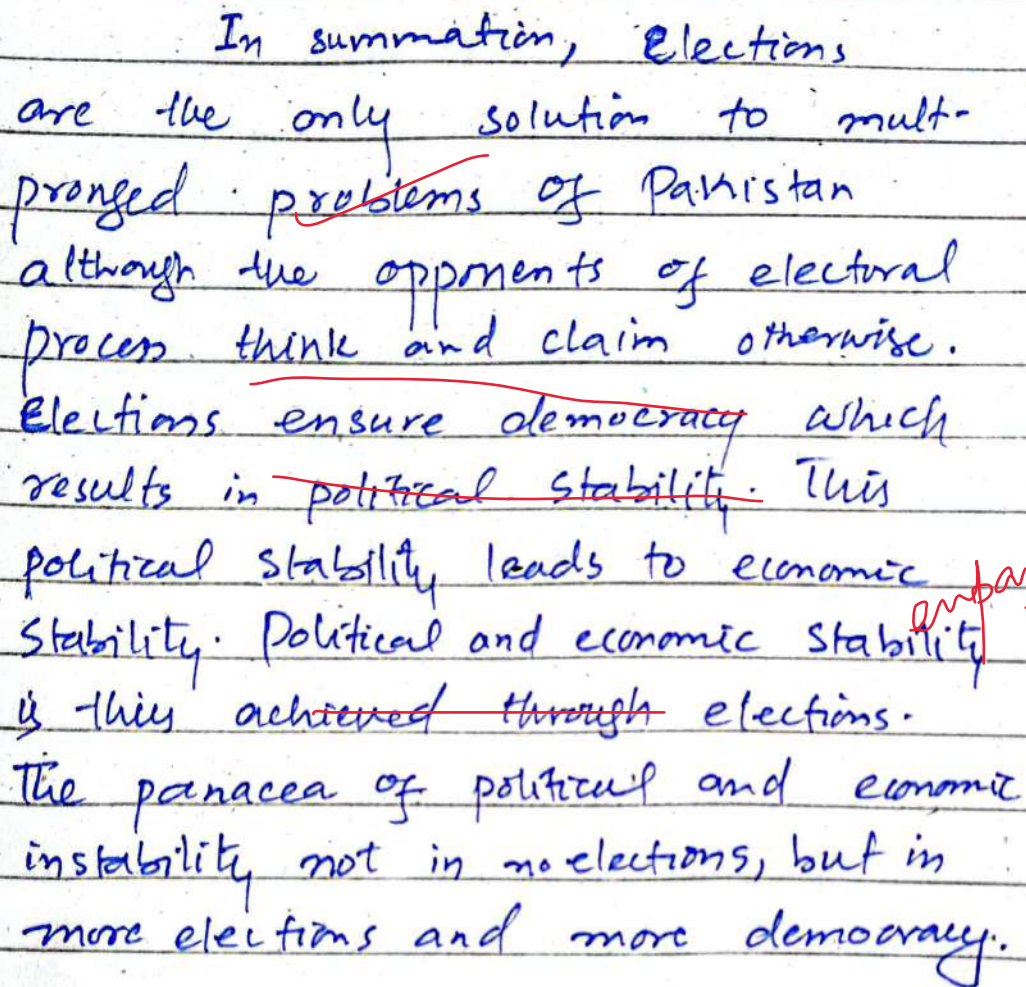 In summation, Elections
are the only solution to mult-
pronged problems of Pakistan
although the opponents of electoral
process think and claim otherwise.
Elections ensure democracy which
results in political stability. This
political stability leads to economic
stability. Political and economic stability
is thus achieved through elections.
The panacea of political and economic
instability not in no elections, but in
more elections and more democracy.